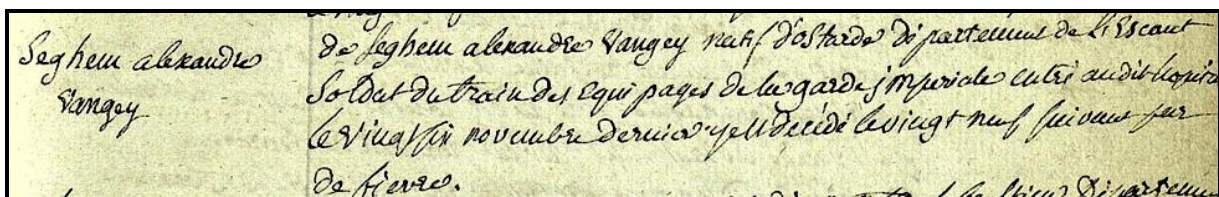 Seghem alexandre
Vangey
de Seghem alexandre Vangey natif d'ostarde département de l'Escaut
Soldat du train des Equipages de la garde jmperiale entré audit hopital
le vingt six novembre dernier y est décédé le vingt neuf suivant par
de fievre.